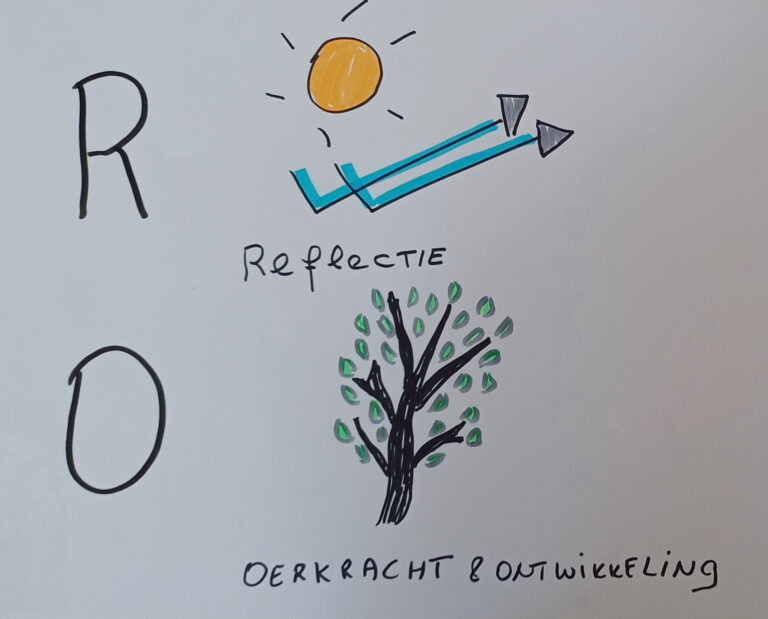 R
Reflectie
O
OERKRACHT & ONTWIKKELING